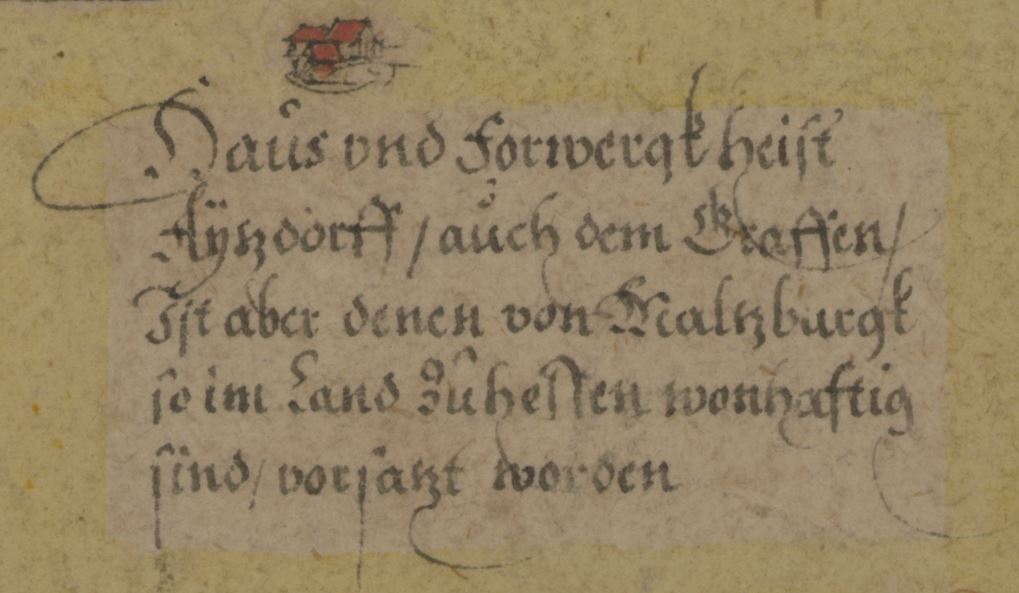 Haus vnd Forwergk heist
Aÿtzdorff / auch dem Graffen /
Ist aber denen von Maltzburgk
so im Land Zu hessen wonhaftig
sind / vorsatzt worden